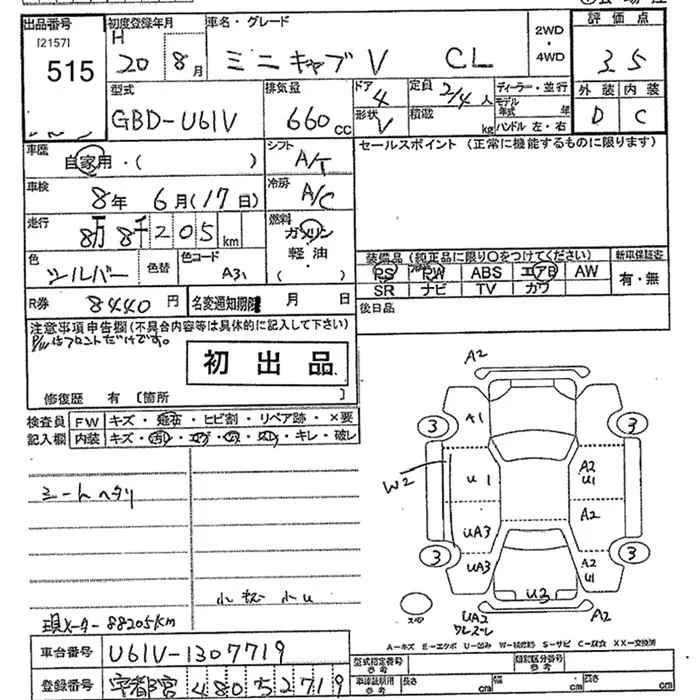 出品番号
[2157]
515
初度登録年月
H 20 8月
車名・グレード
ミニキャブV CL
2WD
・
4WD
評価点
3.5
外装 内装
D C
型式
GBD-U61V
排気量
660cc
ドア 4
形状 V
定員 2/4人
積載 kg
ディーラー・並行
モデル年式 年
ハンドル 左・右
車歴
自家用・( )
シフト
A/T
車検
8年 6月(17日)
冷房
A/C
走行
8万 8千 205 km
燃料
ガソリン
軽油
( )
色
シルバー
色替
色コード
A31
セールスポイント (正常に機能するものに限ります)
装備品 (純正品に限り○をつけてください)
新車保証書
PS PW ABS エアB AW
有・無
SR ナビ TV カワ
R券 8440円
名変通知期限 月 日
後日品
注意事項申告欄(不具合内容等は具体的に記入して下さい)
P/Wはフロントだけです。
初出品
修復歴 有 [箇所 ]
検査員 FW キズ・飛石・ヒビ割・リペア跡・×要
記入欄 内装 キズ・汚れ・・キレ・破レ
シートヘタリ
小キズ 小U
現メーター88205km
A2
A1
3
3
W2
U1
A2
U1
UA3
A2
3
3
UA3
A2
U1
U3
スペア
UA2
A2
A-キズ E-エクボ U-凹み W-補修跡 S-サビ C-腐食 XX-交換済
車台番号 U61V-1307719
型式指定番号 参考
類別区分番号 参考
登録番号 宇都宮 480 そ 2719
車検証利用 参考
長さ cm
幅 cm
高さ cm